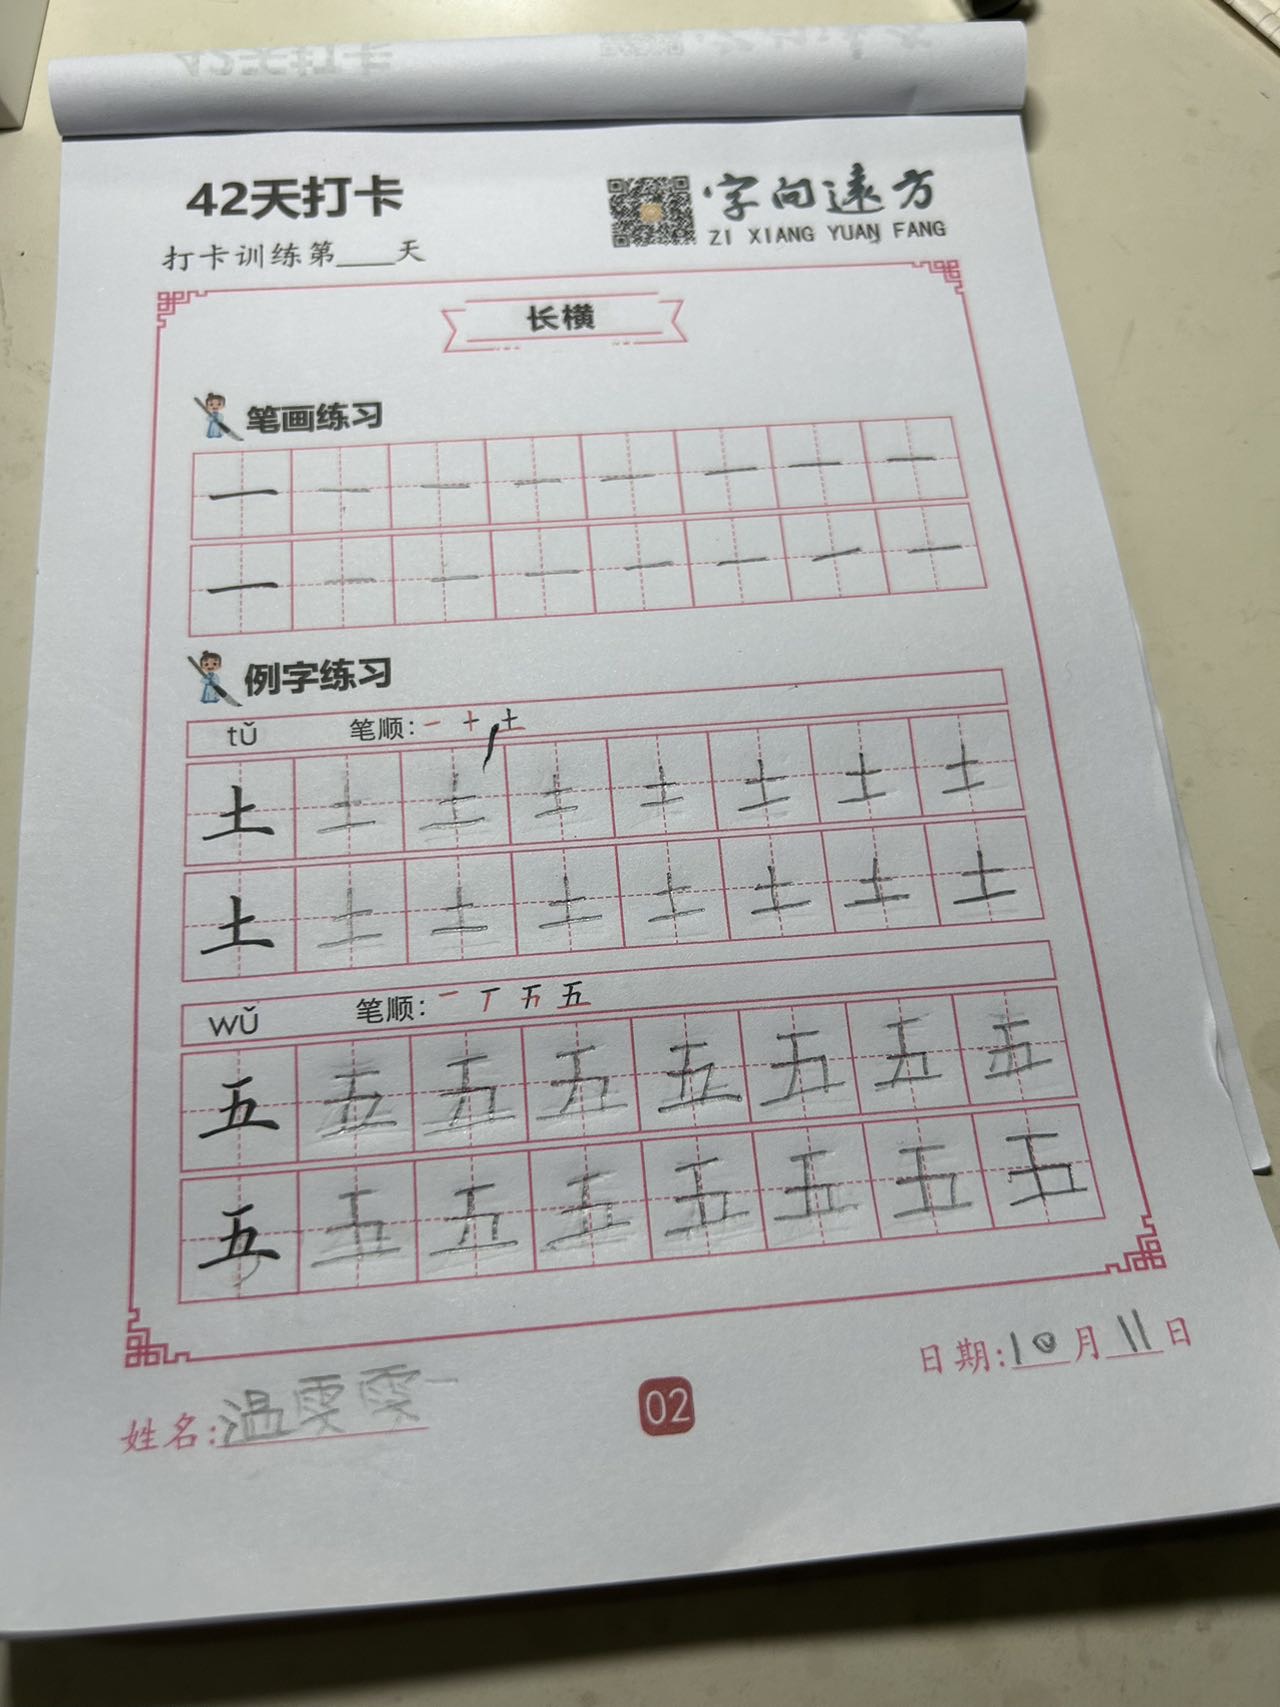 42天打卡
字向遠方
ZI XIANG YUAN FANG
打卡训练第____天
长横
笔画练习
一 一 一 一 一 一 一 一
一 一 一 一 一 一 一 一
例字练习
tǔ 笔顺: 一 十 土
土 土 土 土 土 土 土 土
土 土 土 土 土 土 土 土
wǔ 笔顺: 一 丅 五
五 五 五 五 五 五 五 五
五 五 五 五 五 五 五 五
日期:10月11日
姓名:温雯雯
02